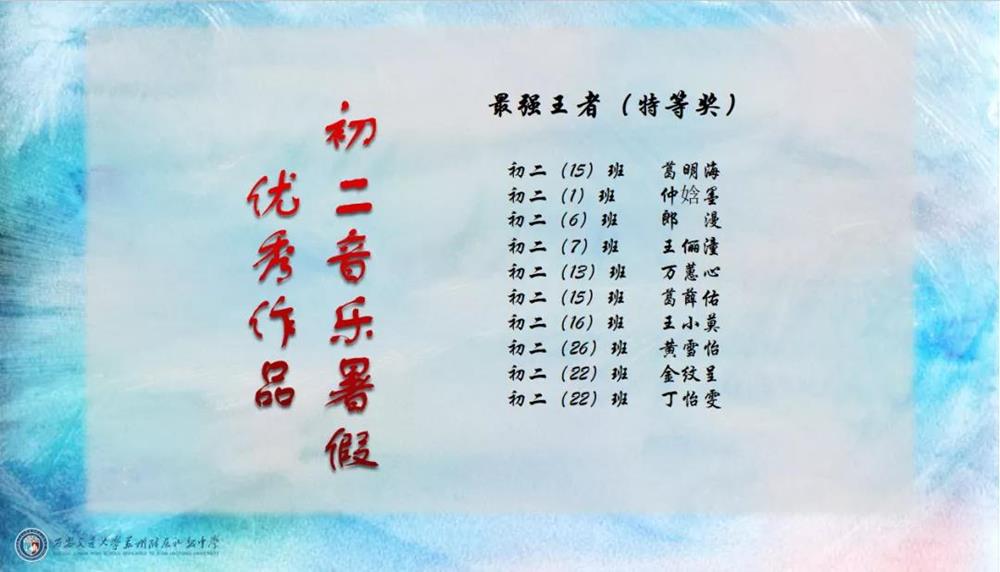 初二音乐暑假
优秀作品
最强王者（特等奖）
初二（15）班 葛明海
初二（1）班 仲婄墨
初二（6）班 郎 漫
初二（7）班 王俪潼
初二（13）班 万蕙心
初二（15）班 葛薛佑
初二（16）班 王小莫
初二（26）班 黄雪怡
初二（22）班 金纹呈
初二（22）班 丁怡雯
西安交通大学苏州附属初级中学